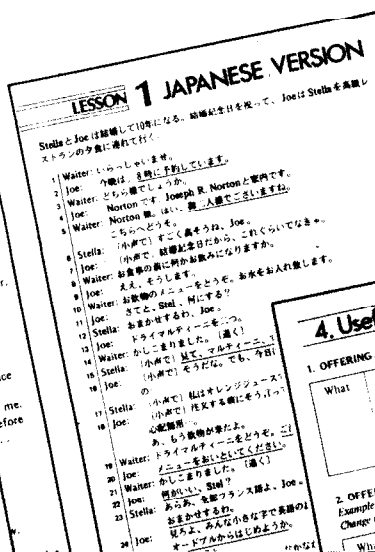 LESSON 1 JAPANESE VERSION
StellaとJoeは結婚して10年になる。結婚記念日を祝って、JoeはStellaを高級レ
ストランの夕食に連れて行く。
1 Waiter: いらっしゃいませ。
2 Joe: 今晩は。8時に予約しています。
3 Waiter: どちら様でしょうか。
4 Joe: Nortonです。Joseph R. Nortonと家内です。
5 Waiter: Norton様。はい、御二人様でございますね。
こちらへどうぞ。
6 Stella: [小声で] すごく高そうね、Joe。
7 Joe: [小声で] 結婚記念日だから、これぐらいでなきゃ。
8 Waiter: お食事の前に何かお飲みになりますか。
9 Joe: ええ、そうします。
10 Waiter: お飲物のメニューをどうぞ。お水をお入れ致します。
11 Joe: さてと、Stel、何にする?
12 Stella: おまかせするわ、Joe。
13 Joe: ドライマルティーニを二つ。
14 Waiter: かしこまりました。[退く]
15 Stella: [小声で] 見て、マルティーニ、
16 Joe: [小声で] そうだな。でも、今日
の
17 Stella: [小声で] 私はオレンジジュース
18 Joe: [小声で] 注文する前にそう
心配無用
あ、もう飲物が来たよ。
19 Waiter: ドライマルティーニをどうぞ。
20 Joe: メニューをおいといてください。
21 Waiter: かしこまりました。[退く]
22 Joe: 何がいい、Stel?
23 Stella: あらあ、全部フランス語よ、Joe。
おまかせするわ。
24 Joe: 見ろよ、みんな小さな字で英語の
オードブルからはじめようか。
me.
efore
4. Usef
1. OFFERING
What
2. OFFE
Example
Change
Wha